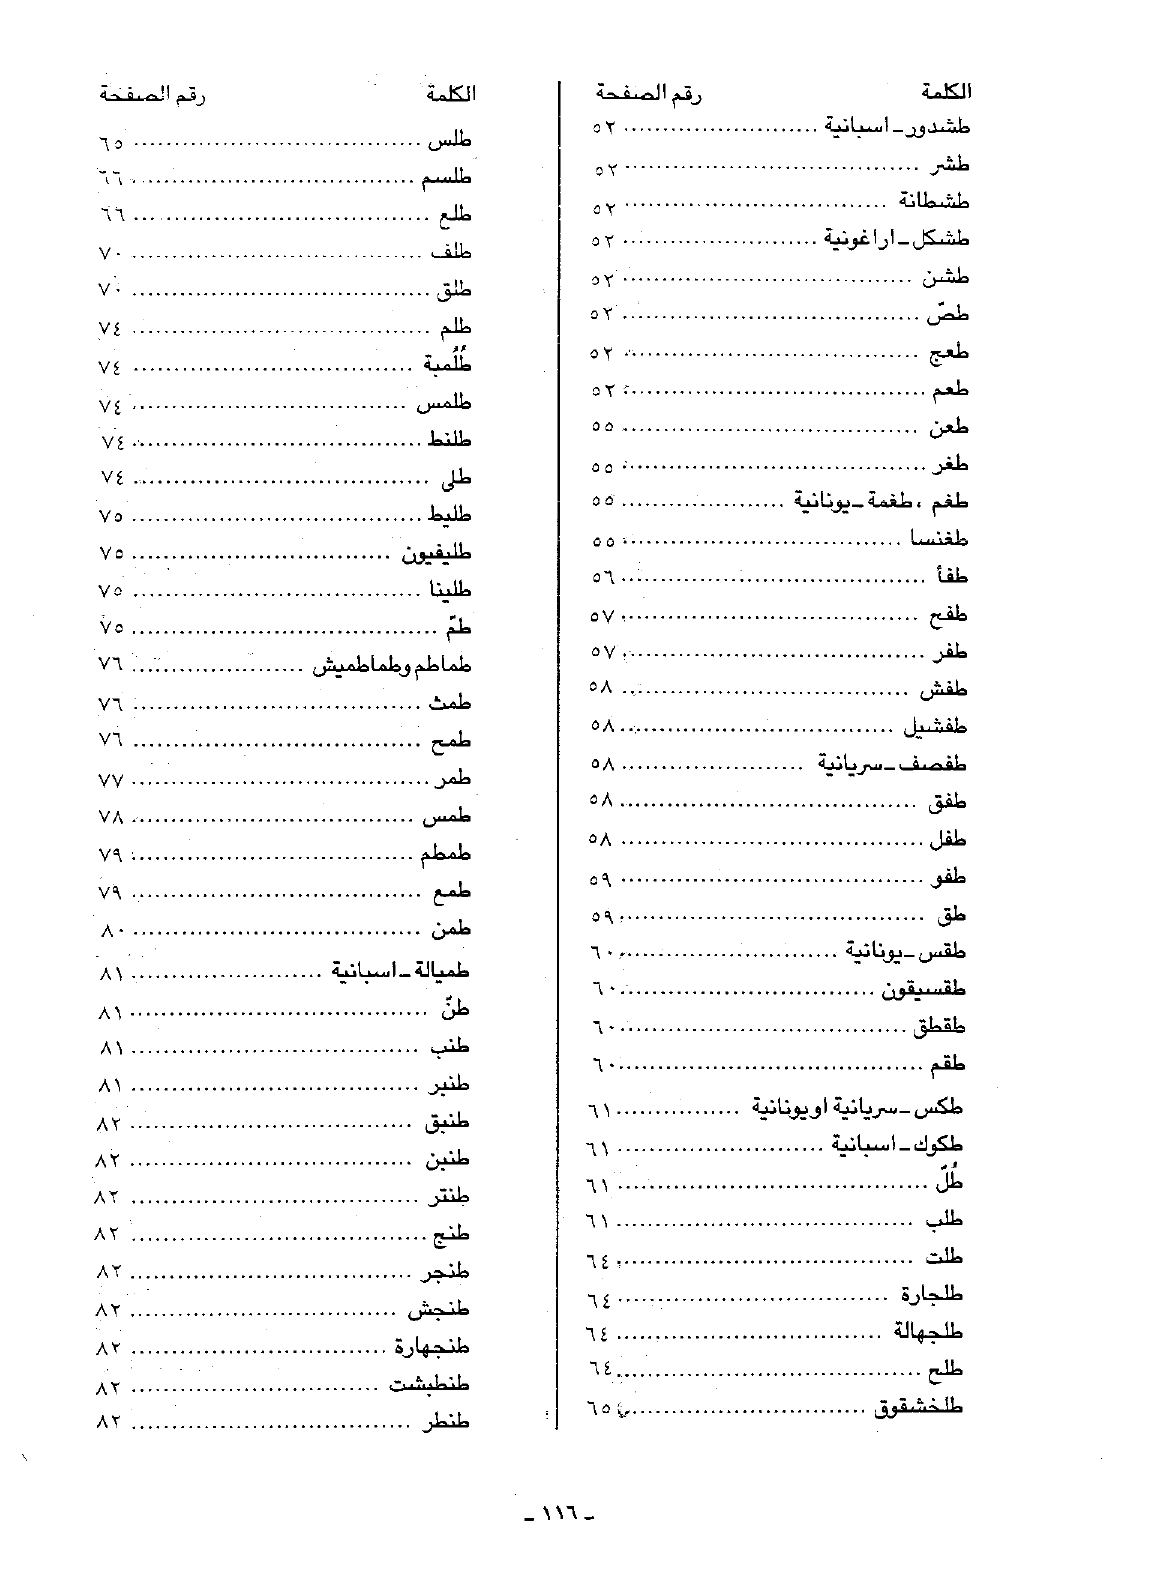 الكلمة رقم الصفحة
طشدور ـ اسبانية ........................ ٥٢
طشر ..................................... ٥٢
طشطانة ................................. ٥٢
طشكل ـ اراغونية ........................ ٥٢
طشن ..................................... ٥٢
طصّ ..................................... ٥٢
طعج ..................................... ٥٢
طعم ..................................... ٥٢
طعن ..................................... ٥٥
طغر ..................................... ٥٥
طغم ، طغمة ـ يونانية ..................... ٥٥
طغنسا ................................... ٥٥
طفأ ..................................... ٥٦
طفح ..................................... ٥٧
طفر ..................................... ٥٧
طفش ..................................... ٥٨
طفشيل ................................... ٥٨
طفصف ـ سريانية ....................... ٥٨
طفق ..................................... ٥٨
طفل ..................................... ٥٨
طفو ..................................... ٥٩
طق ...................................... ٥٩
طقس ـ يونانية ........................... ٦٠
طقسيقون ................................ ٦٠
طقطق .................................... ٦٠
طقم ..................................... ٦٠
طكس ـ سريانية او يونانية ................ ٦١
طكوك ـ اسبانية .......................... ٦١
طُلّ ...................................... ٦١
طلب ..................................... ٦١
طلت ..................................... ٦٤
طلجارة .................................. ٦٤
طلجهالة ................................. ٦٤
طلح ..................................... ٦٤
طلخشقوق ............................... ٦٥
الكلمة رقم الصفحة
طلس ..................................... ٦٥
طلسم .................................... ٦٦
طلع ..................................... ٦٦
طلف ..................................... ٧٠
طلق ..................................... ٧٠
طلم ..................................... ٧٤
طُلُمبة ................................... ٧٤
طلمس .................................... ٧٤
طلنط .................................... ٧٤
طلى ..................................... ٧٤
طليط .................................... ٧٥
طليفيون ................................. ٧٥
طلينا .................................... ٧٥
طمّ ...................................... ٧٥
طماطم وطماطميش ...................... ٧٦
طمث ..................................... ٧٦
طمح ..................................... ٧٦
طمر ..................................... ٧٧
طمس ..................................... ٧٨
طمطم .................................... ٧٩
طمع ..................................... ٧٩
طمن ..................................... ٨٠
طميالة ـ اسبانية ........................ ٨١
طنّ ...................................... ٨١
طنب ..................................... ٨١
طنبر .................................... ٨١
طنبق .................................... ٨٢
طنبن .................................... ٨٢
طنتر .................................... ٨٢
طنج ..................................... ٨٢
طنجر .................................... ٨٢
طنجش ................................... ٨٢
طنجهارة ................................ ٨٢
طنطبشت ................................ ٨٢
طنطر .................................... ٨٢
ـ ١١٦ ـ